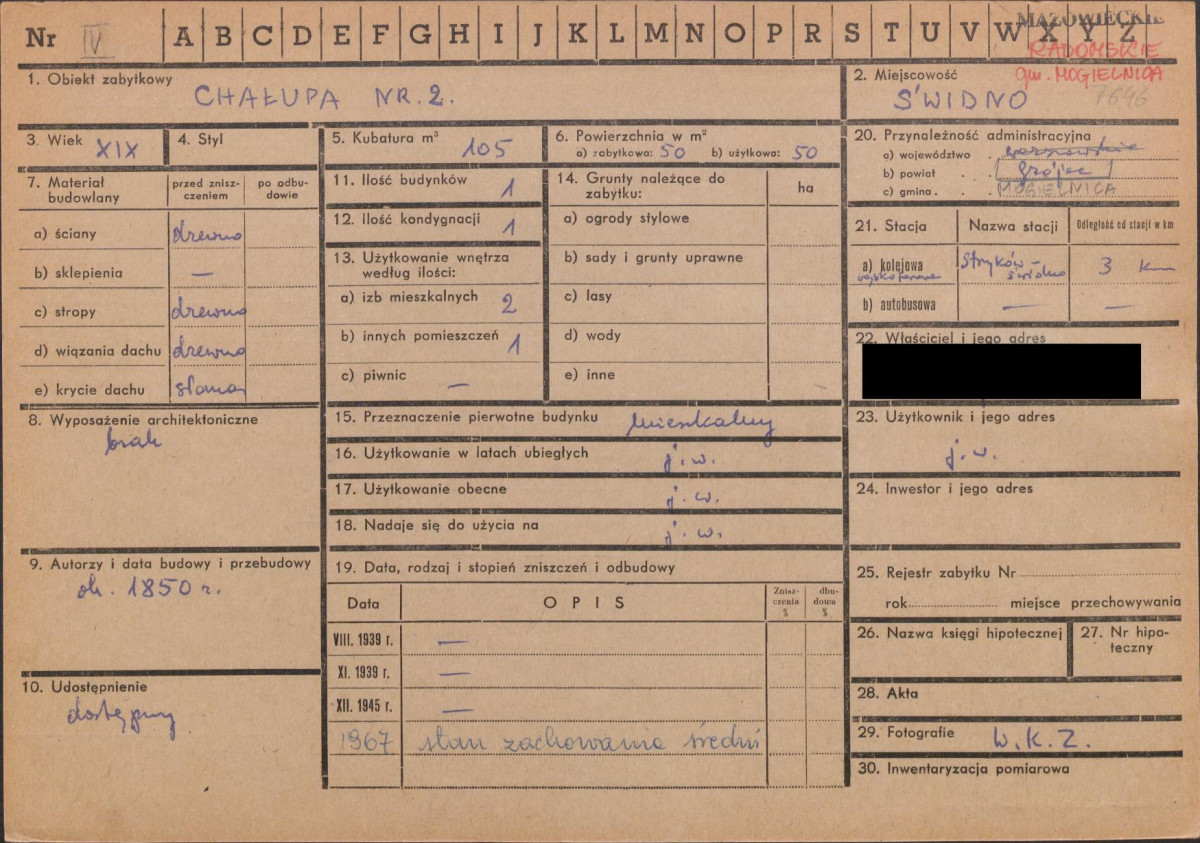 Nr IV A B C D E F G H I J K L M N O P R S T U V W X Y Z
MAZOWIECKIE
RADOMSKIE
gm. MOGIELNICA
7646
1. Obiekt zabytkowy
CHAŁUPA NR. 2.
2. Miejscowość
ŚWIDNO
3. Wiek XIX
4. Styl
5. Kubatura m³ 105
6. Powierzchnia w m²
a) zabytkowa: 50 b) użytkowa: 50
7. Materiał budowlany
przed zniszczeniem
po odbudowie
a) ściany drewno
b) sklepienia —
c) stropy drewno
d) wiązania dachu drewno
e) krycie dachu słoma
8. Wyposażenie architektoniczne
brak
9. Autorzy i data budowy i przebudowy
ok. 1850 r.
10. Udostępnienie
dostępny
11. Ilość budynków 1
12. Ilość kondygnacji 1
13. Użytkowanie wnętrza
według ilości:
a) izb mieszkalnych 2
b) innych pomieszczeń 1
c) piwnic —
14. Grunty należące do
zabytku:
ha
a) ogrody stylowe
b) sady i grunty uprawne
c) lasy
d) wody
e) inne
15. Przeznaczenie pierwotne budynku mieszkalny
16. Użytkowanie w latach ubiegłych j.w.
17. Użytkowanie obecne j.w.
18. Nadaje się do użycia na j.w.
19. Data, rodzaj i stopień zniszczeń i odbudowy
Data
OPIS
Zniszczenia %
dbudowa %
VIII. 1939 r. —
XI. 1939 r. —
XII. 1945 r. —
1967 stan zachowania średni
20. Przynależność administracyjna
a) województwo . warszawskie
b) powiat . . . grójec
c) gmina . . . MOGIELNICA
21. Stacja
Nazwa stacji
Odległość od stacji w km
a) kolejowa Stryków-
wąskotorowa Świdno 3 km
b) autobusowa — —
22. Właściciel i jego adres
23. Użytkownik i jego adres
j.w.
24. Inwestor i jego adres
25. Rejestr zabytku Nr
rok miejsce przechowywania
26. Nazwa księgi hipotecznej
27. Nr hipoteczny
28. Akta
29. Fotografie W.K.Z.
30. Inwentaryzacja pomiarowa